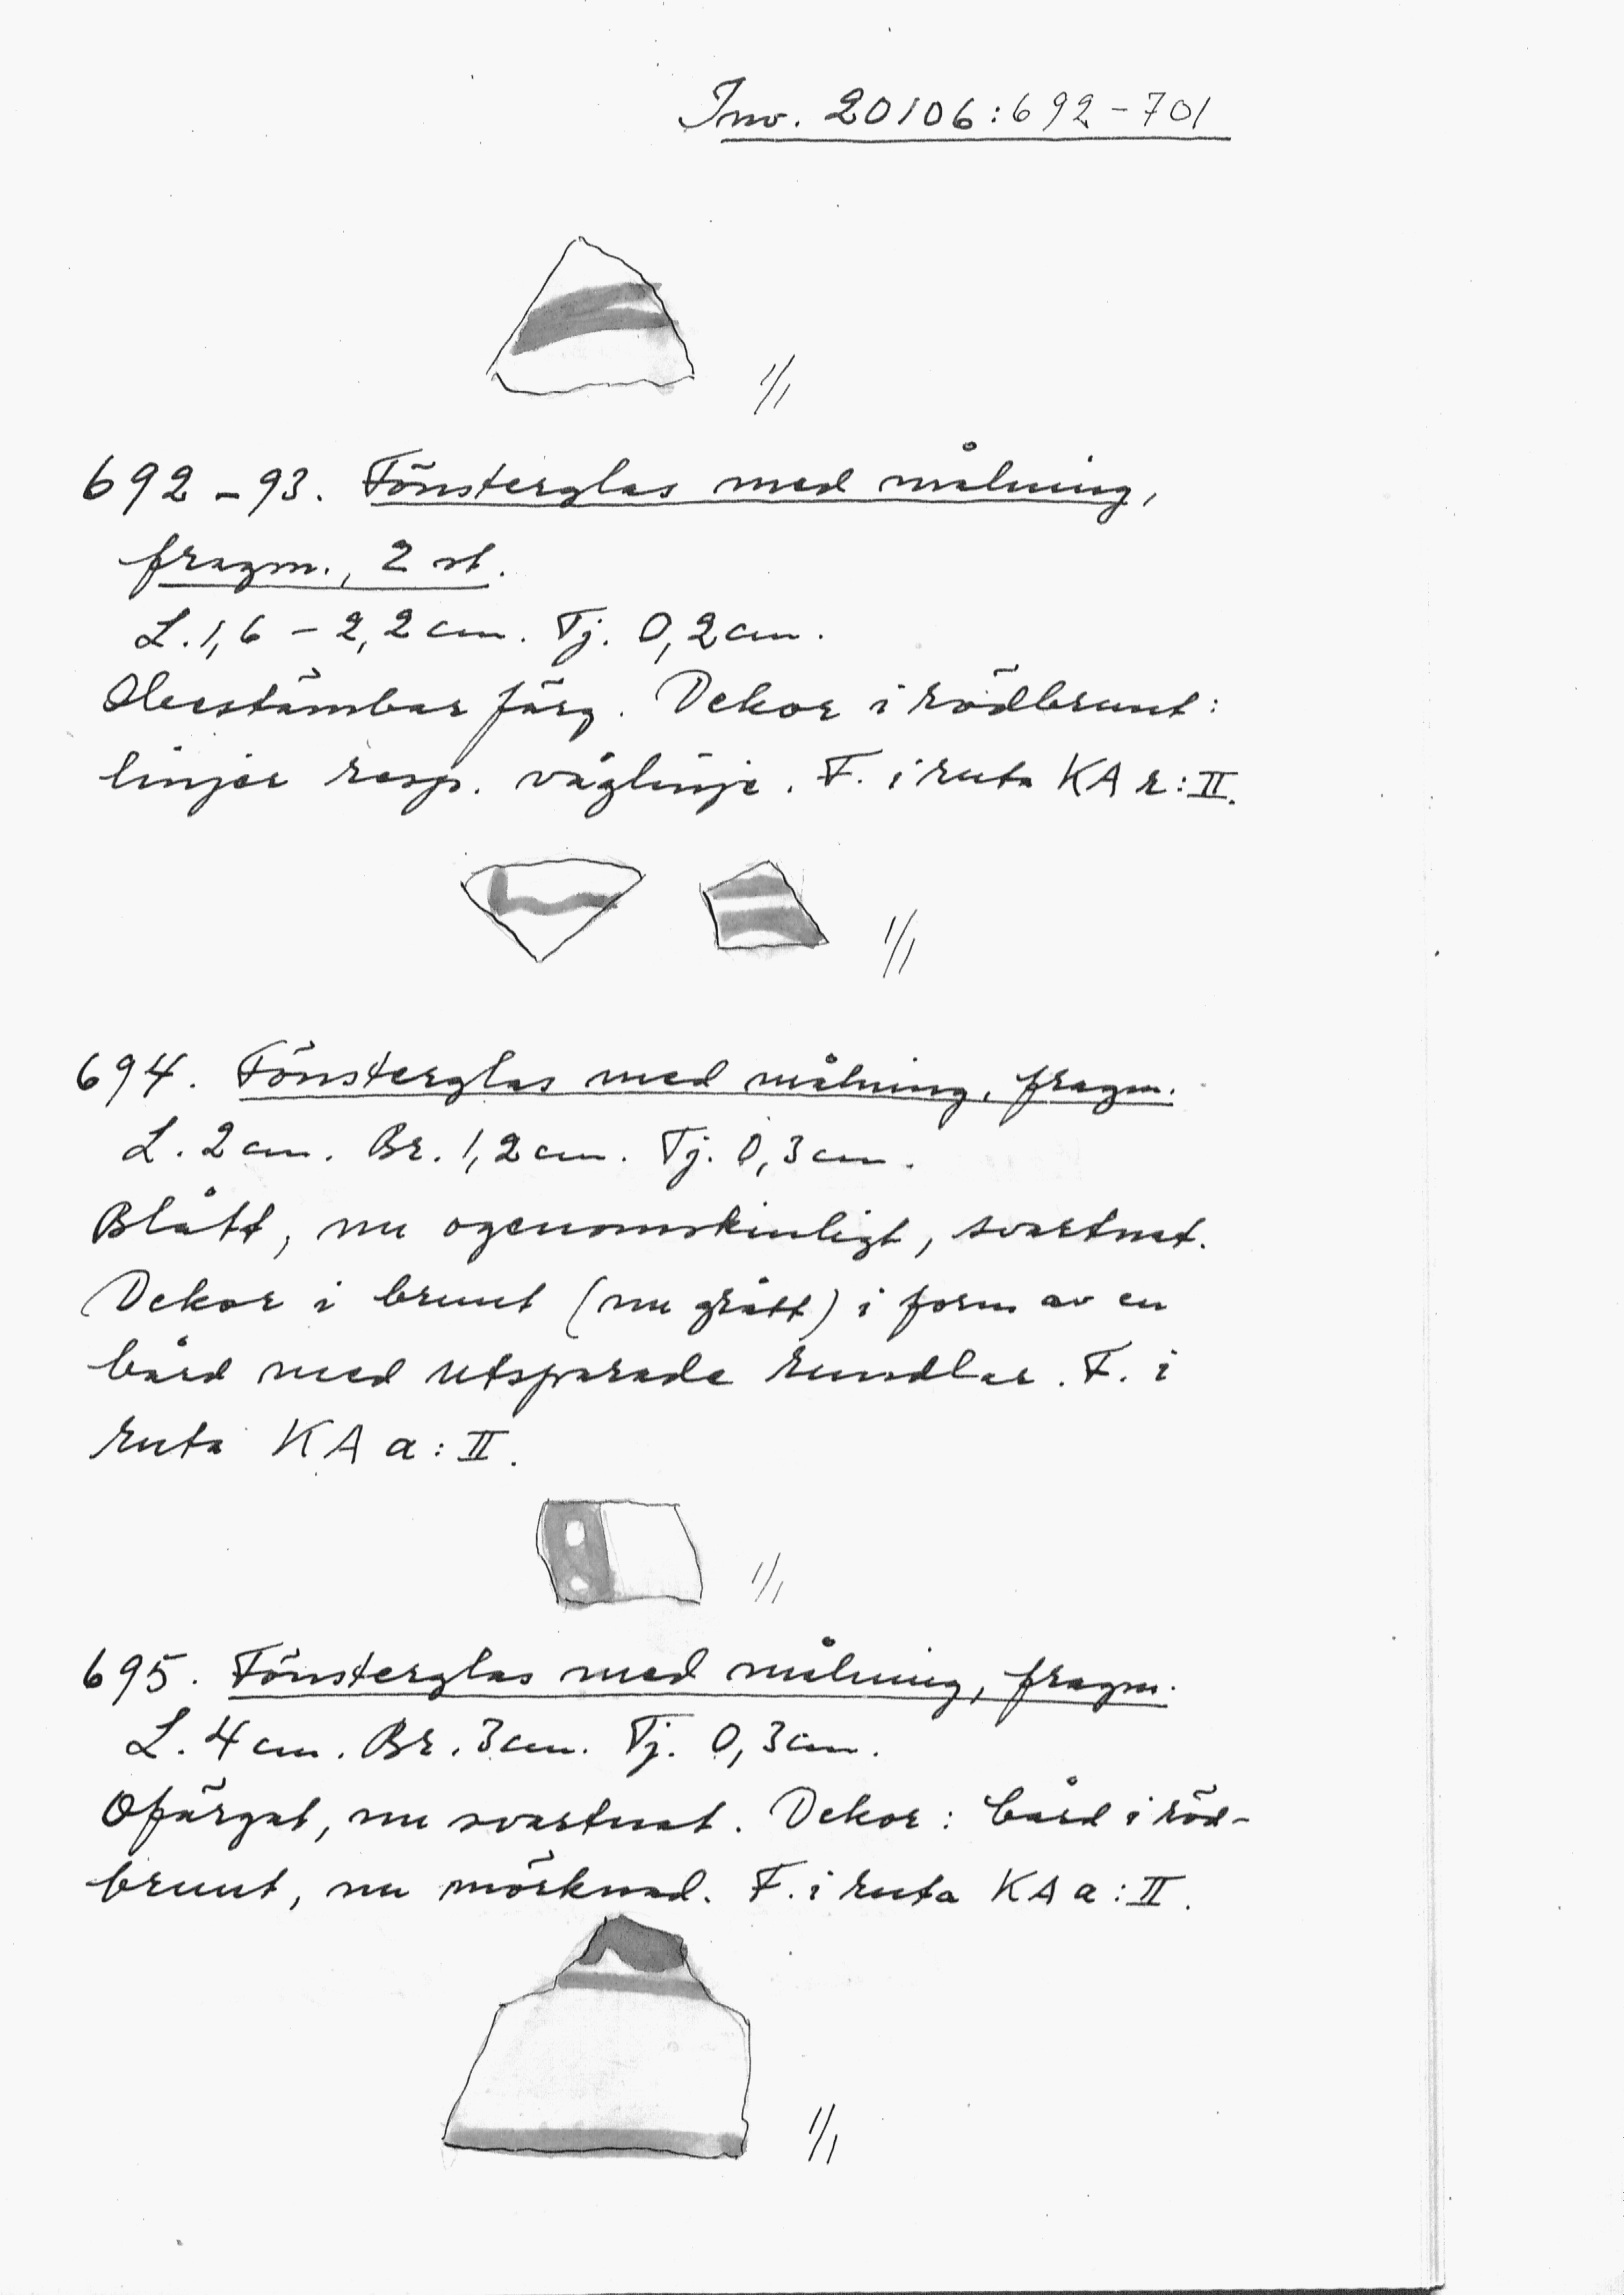 Inv. 20106:692-701
1/1
692-93. Fönsterglas med målning,
fragm., 2 st.
L. 1,6 - 2,2 cm. Tj. 0,2 cm.
Obestämbar färg. Dekor i rödbrunt:
linjer resp. våglinje. F. i ruta KA r:II.
1/1
694. Fönsterglas med målning, fragm.
L. 2 cm. Br. 1,2 cm. Tj. 0,3 cm.
Blått, nu ogenomskinligt, svartnat.
Dekor i brunt (nu grått) i form av en
bård med utsparade rundlar. F. i
ruta KA a:II.
1/1
695. Fönsterglas med målning, fragm.
L. 4 cm. Br. 3 cm. Tj. 0,3 cm.
Ofärgat, nu svartnat. Dekor: bård i röd-
brunt, nu mörknad. F. i ruta KA a:II.
1/1